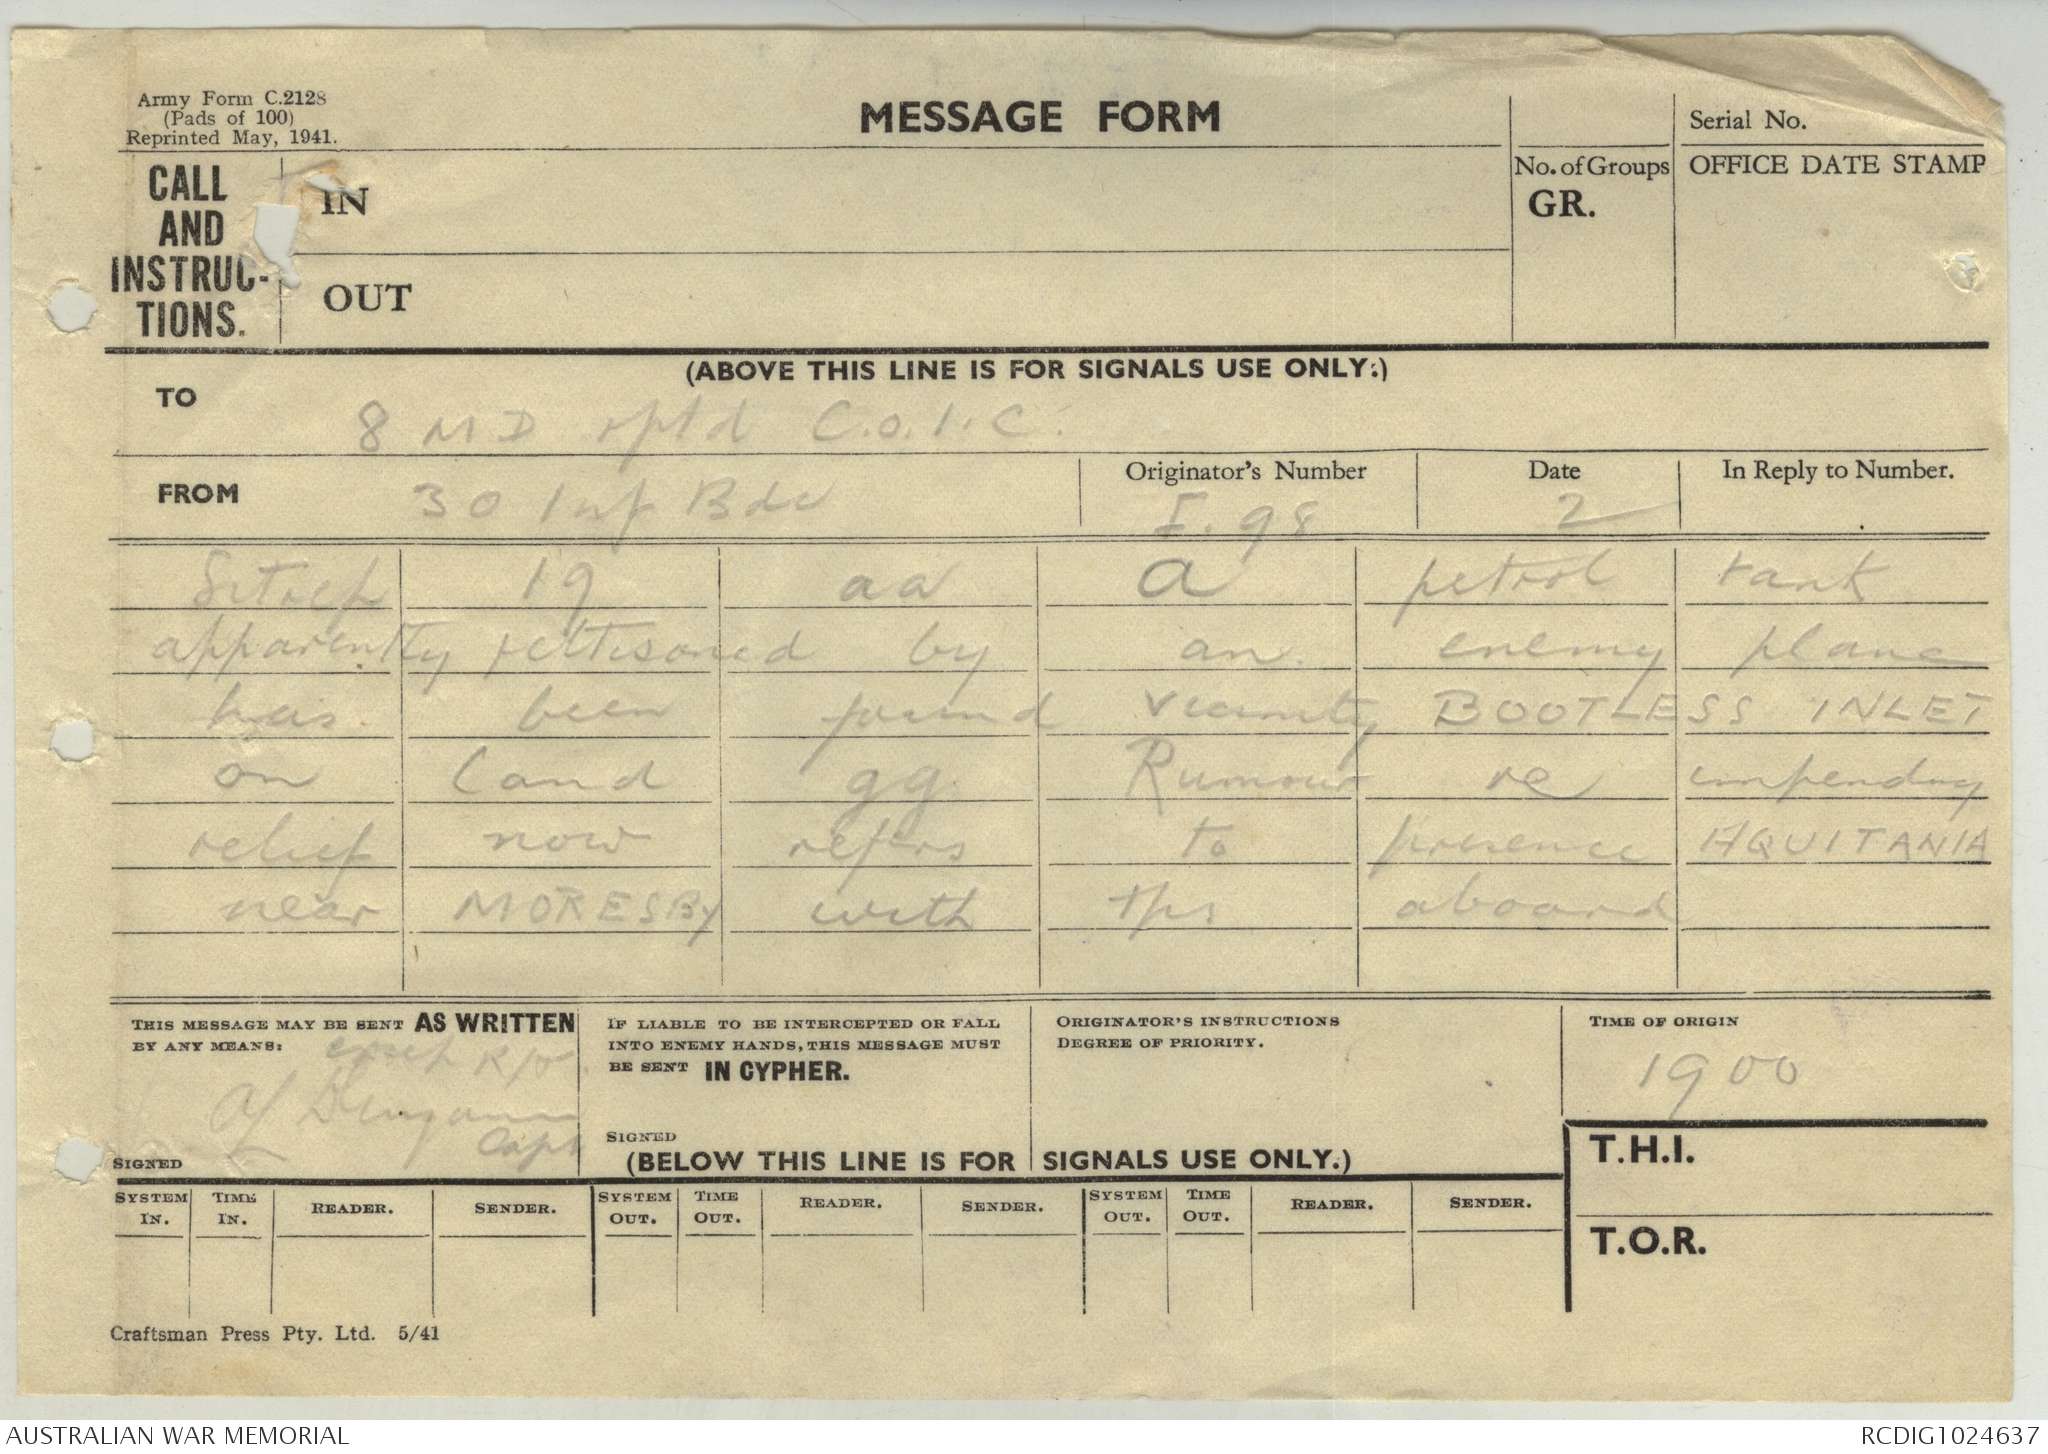 Army Form C.2128
(Pads of 100)
Reprinted May, 1941.
MESSAGE FORM
Serial No.
CALL
AND
INSTRUC-
TIONS.
IN
OUT
No. of Groups
GR.
OFFICE DATE STAMP
(ABOVE THIS LINE IS FOR SIGNALS USE ONLY.)
TO
8 MD rptd C.O.I.C.
FROM
30 Inf Bde
Originator's Number
I. 98
Date
2
In Reply to Number.
Sitrep 19 aa a petrol tank
apparently jettisoned by an enemy plane
has been found vicinity BOOTLESS INLET
on land gg. Rumour re impending
relief now refers to presence AQUITANIA
near MORESBY with tps aboard
THIS MESSAGE MAY BE SENT AS WRITTEN
BY ANY MEANS:
Capt
SIGNED
IF LIABLE TO BE INTERCEPTED OR FALL
INTO ENEMY HANDS, THIS MESSAGE MUST
BE SENT IN CYPHER.
SIGNED
ORIGINATOR'S INSTRUCTIONS
DEGREE OF PRIORITY.
TIME OF ORIGIN
1900
(BELOW THIS LINE IS FOR SIGNALS USE ONLY.)
T.H.I.
T.O.R.
SYSTEM IN. TIME IN. READER. SENDER. SYSTEM OUT. TIME OUT. READER. SENDER. SYSTEM OUT. TIME OUT. READER. SENDER.
Craftsman Press Pty. Ltd. 5/41
AUSTRALIAN WAR MEMORIAL
RCDIG1024637